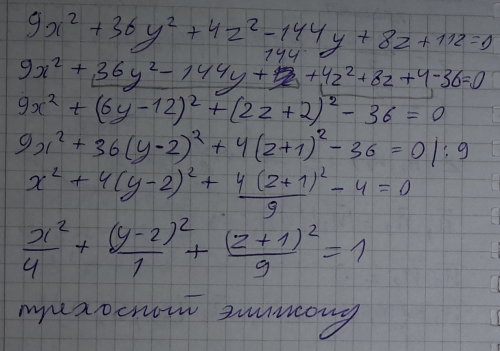 9x² + 36y² + 4z² - 144y + 8z + 112 = 0
9x² + 36y² - 144y + 144 + 4z² + 8z + 4 - 36 = 0
9x² + (6y - 12)² + (2z + 2)² - 36 = 0
9x² + 36(y - 2)² + 4(z + 1)² - 36 = 0 | : 9
x² + 4(y - 2)² + 4(z + 1)²/9 - 4 = 0
x²/4 + (y - 2)²/1 + (z + 1)²/9 = 1
трехосный